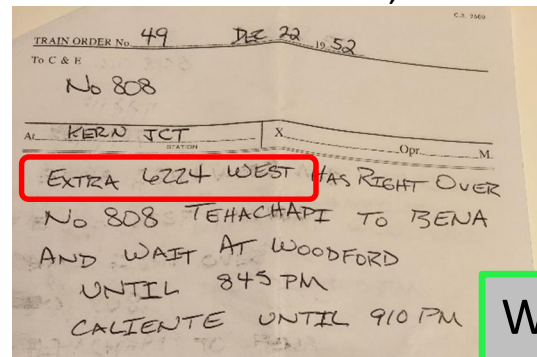 C.S. 2060
TRAIN ORDER No. 49 DEC 22 1952
To C & E
No 808
At KERN JCT X Opr. M.
STATION
EXTRA 6224 WEST HAS RIGHT OVER
No 808 TEHACHAPI TO BENA
AND WAIT AT WOODFORD
UNTIL 845 PM
CALIENTE UNTIL 910 PM
W